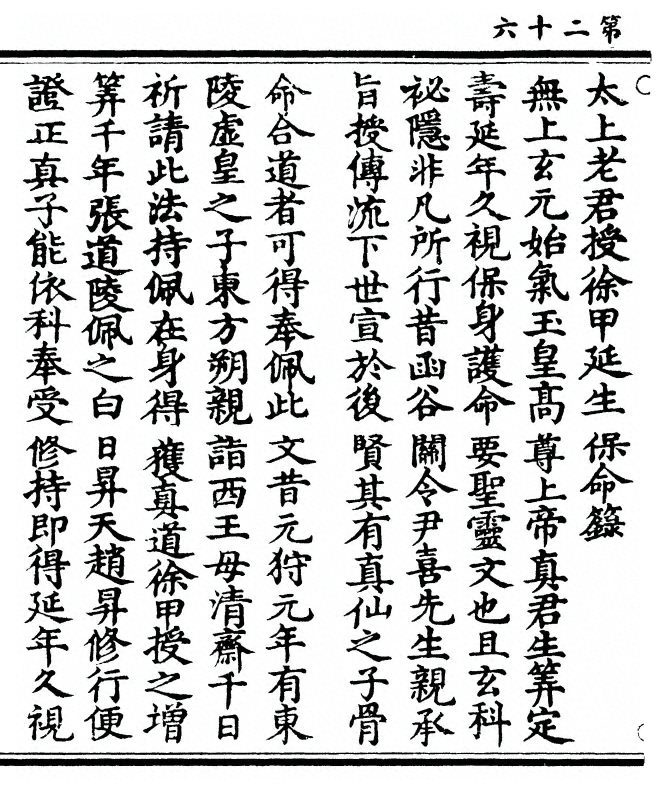 第二十六
太上老君授徐甲延生保命籙
無上玄元始氣玉皇髙尊上帝真君生筭定
壽延年久視保身護命要聖靈文也且玄科
祕隱非凡所行昔函谷關令尹喜先生親承
旨授傳流下世宣於後賢其有真仙之子骨
命合道者可得奉佩此文昔元狩元年有東
陵虛皇之子東方朔親詣西王母清齋千日
祈請此法持佩在身得獲真道徐甲授之增
筭千年張道陵佩之白日昇天趙昇修行便
證正真子能依科奉受修持即得延年久視